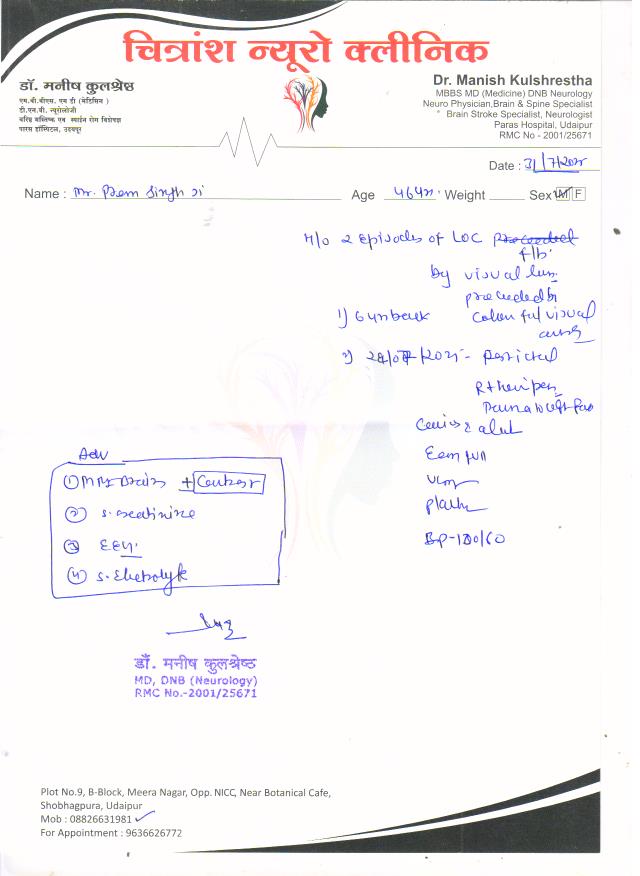 चित्रांश न्यूरो क्लीनिक
डॉ. मनीष कुलश्रेष्ठ
एम.बी.बी.एस. एम डी (मेडिसिन)
डी.एन.बी. न्यूरोलोजी
वरिष्ठ मस्तिष्क एवं स्पाईन रोग विशेषज्ञ
पारस हॉस्पिटल, उदयपुर
Dr. Manish Kulshrestha
MBBS MD (Medicine) DNB Neurology
Neuro Physician,Brain & Spine Specialist
Brain Stroke Specialist, Neurologist
Paras Hospital, Udaipur
RMC No - 2001/25671
Date :
Name : Mr. Prem Singh Ji Age 46 Weight Sex M F
H/o 2 Episodes of LOC
f/b
by visual
preceded by
1) 6 yr back Colourful visual
2)
Conscious & alert
BP-100/60
Adv
① MRI Brain + Contrast
② S. creatinine
③ EEG
④ S. Electrolyte
डॉ. मनीष कुलश्रेष्ठ
MD, DNB (Neurology)
RMC No.-2001/25671
Plot No.9, B-Block, Meera Nagar, Opp. NICC, Near Botanical Cafe,
Shobhagpura, Udaipur
Mob : 08826631981
For Appointment : 9636626772